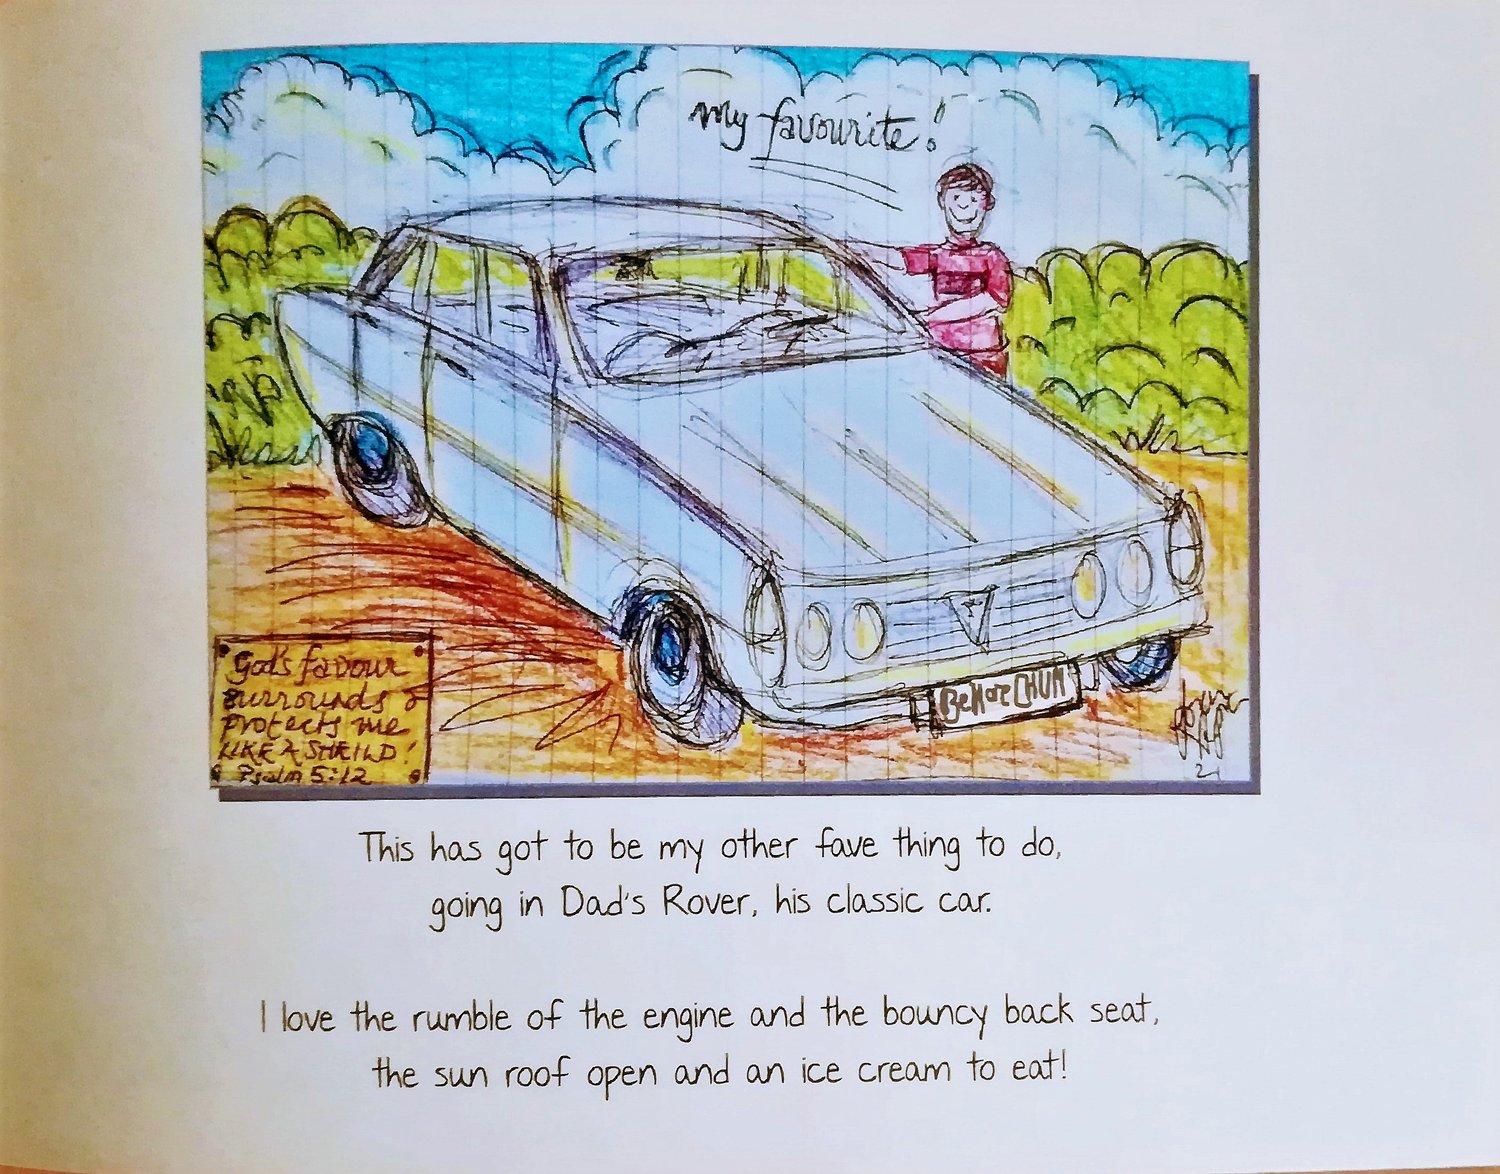 my favourite!
God's favour
surrounds &
protects me
LIKE A SHEILD!
Psalm 5:12
CHUM
This has got to be my other fave thing to do,
going in Dad's Rover, his classic car.
I love the rumble of the engine and the bouncy back seat,
the sun roof open and an ice cream to eat!